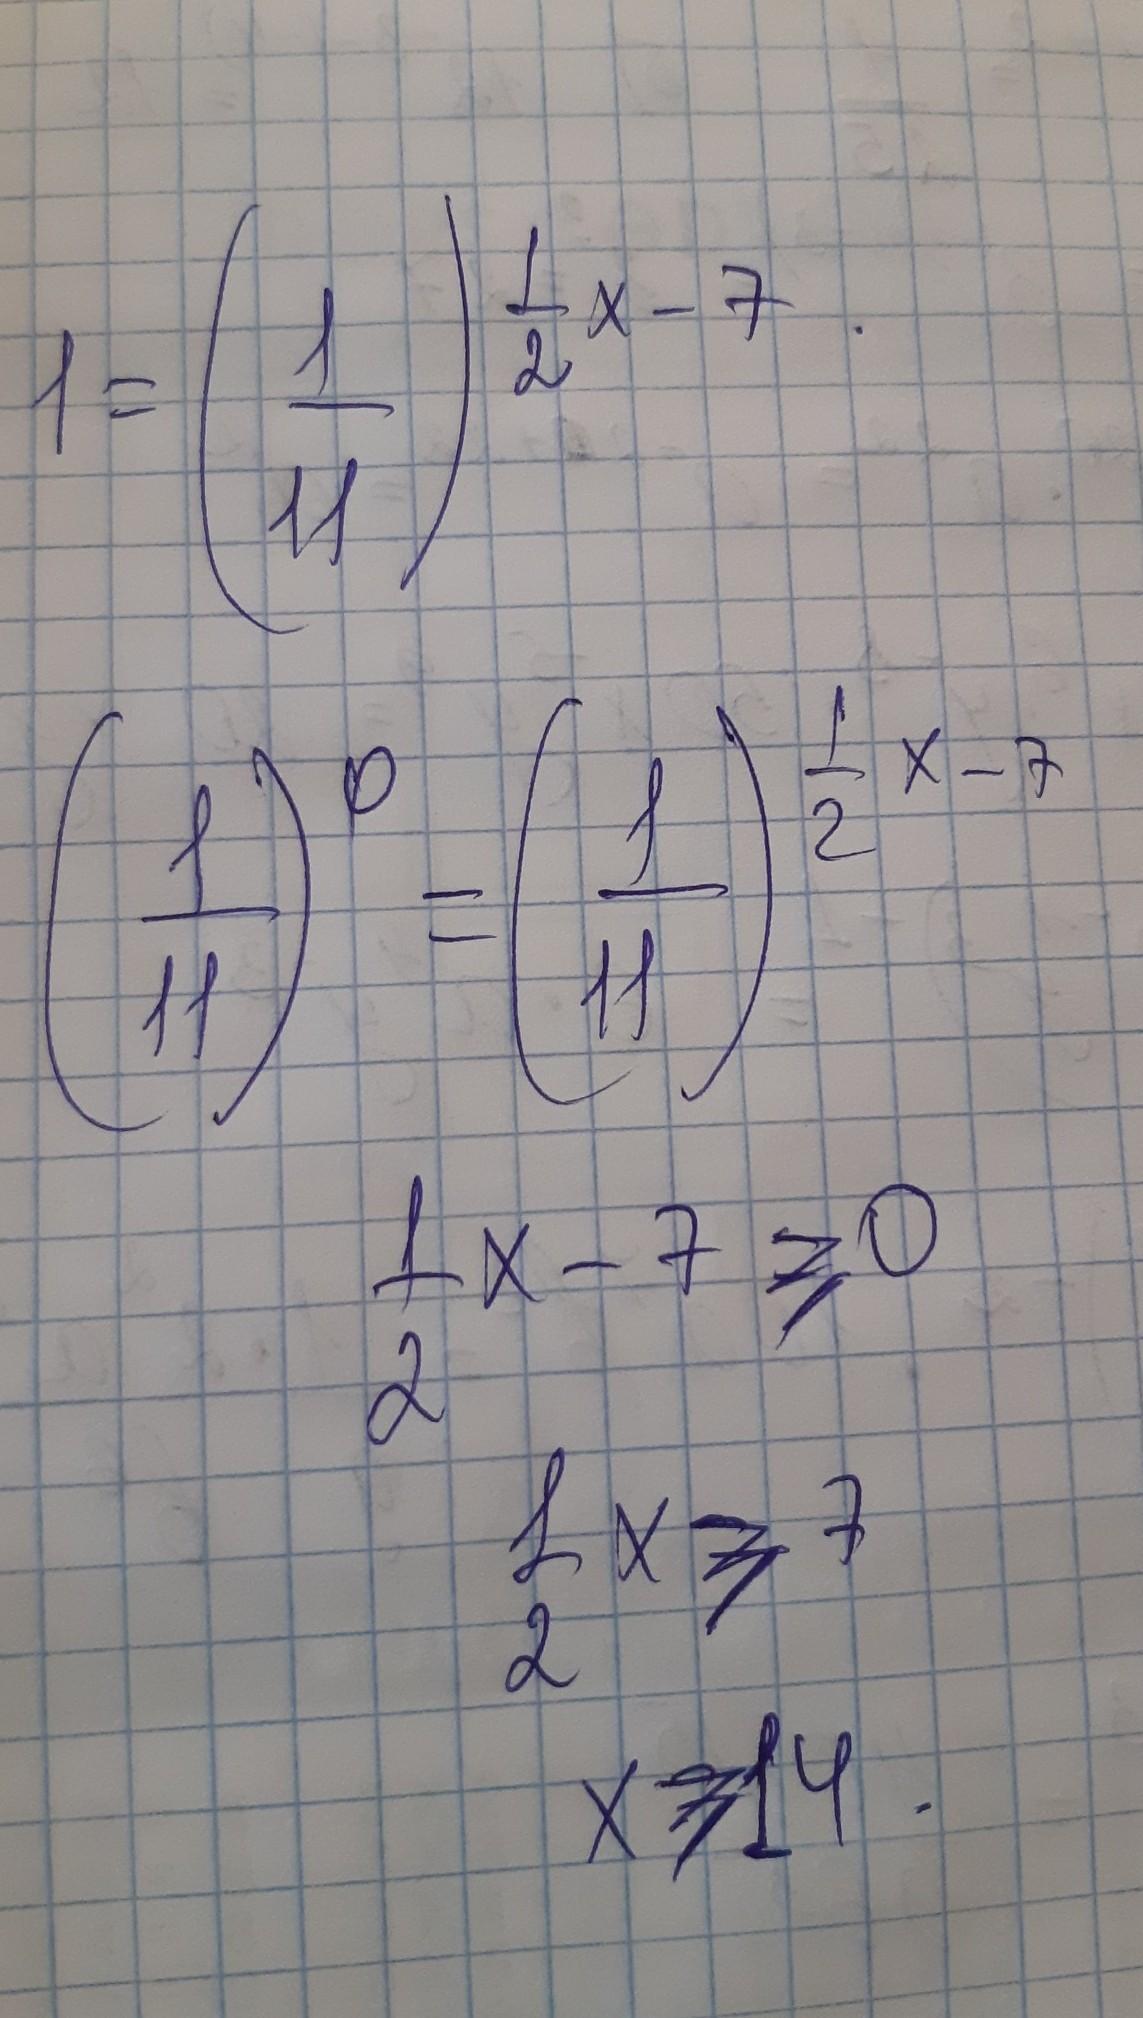 1 = (1/11)^(1/2 x - 7).
(1/11)^0 = (1/11)^(1/2 x - 7)
1/2 x - 7 ⩾ 0
1/2 x ⩾ 7
x ⩾ 14.